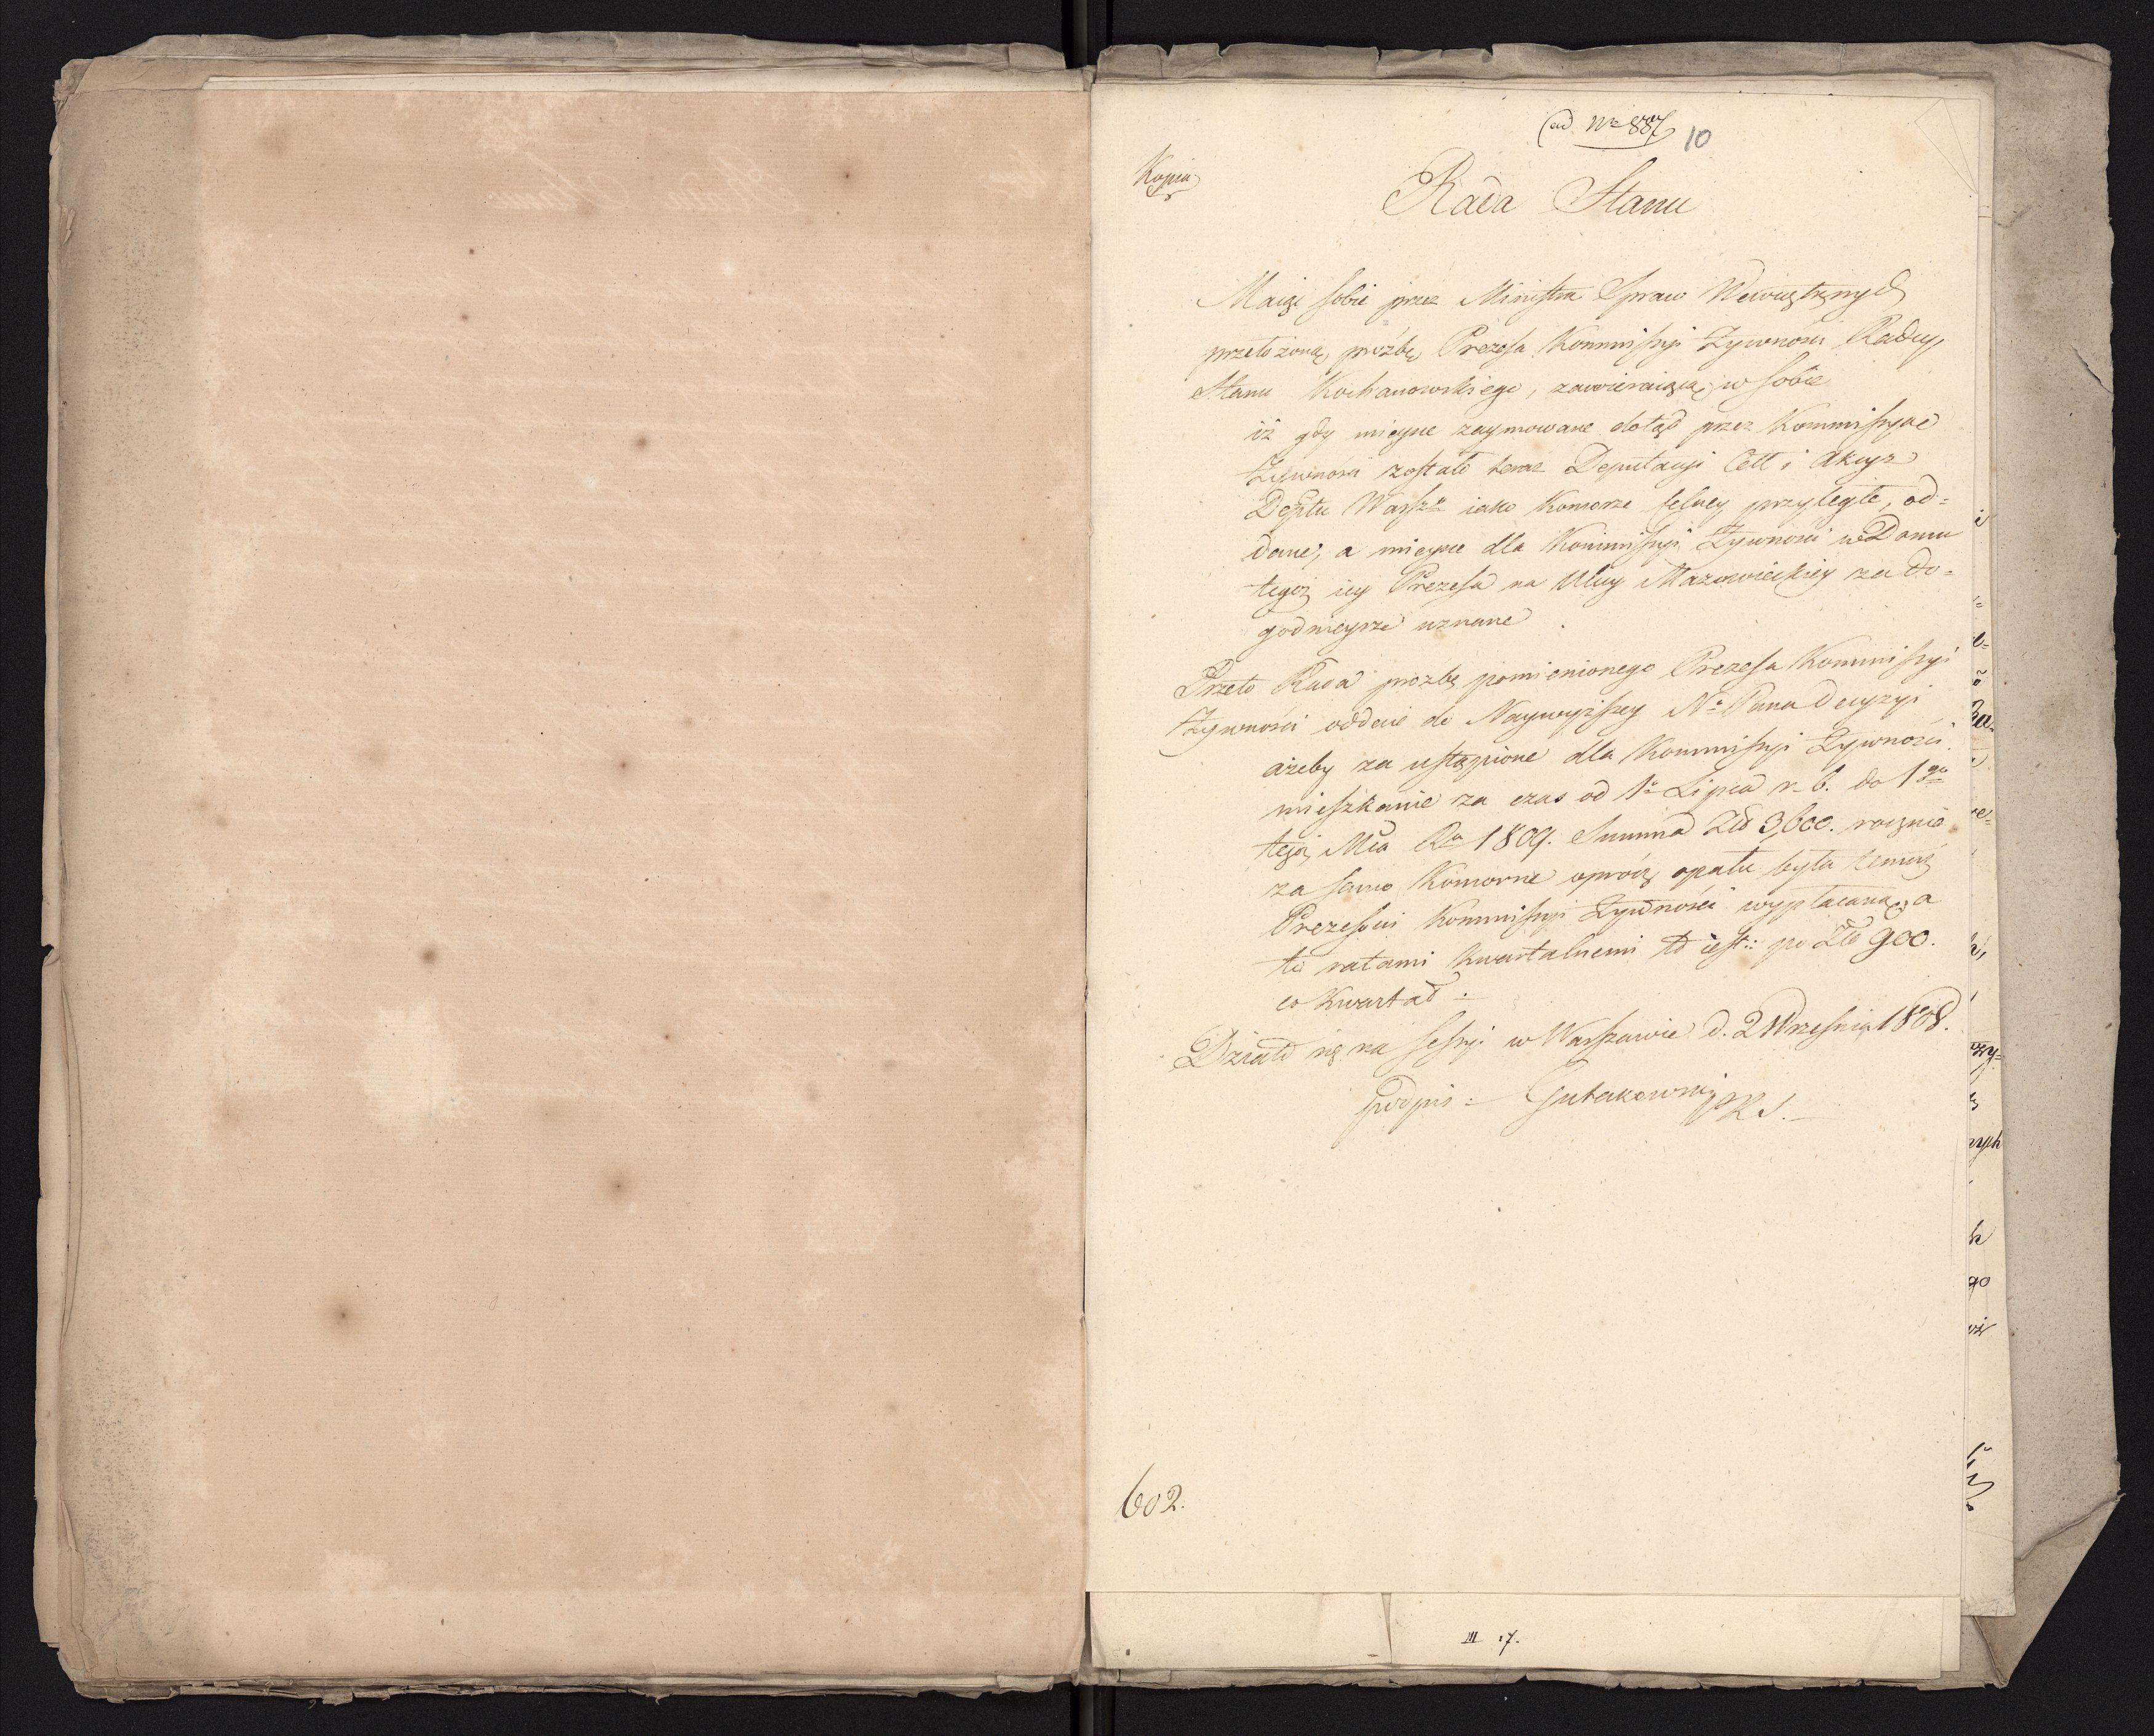 ad Nro 887
10
Kopia
Rada Stanu
Maiąc sobie przez Ministra Spraw Wewnętrznych
przełożoną proźbę Prezesa Kommissyi Żywności Radcy
Stanu Kochanowskiego, zawieraiącą w sobie
iż gdy mieysce zaymowane dotąd przez Kommissyae
Żywności zostało teraz Deputacyi Cell i Akcyz
Deptu Warszgo iako Komorze celney przyległe, od=
dane, a mieysce dla Kommissyi Żywności w Domu
tegoż iey Prezesa na Ulicy Mazowieckiey za do=
godnieysze uznane
Przeto Rada prozbę pomienionego Prezesa Kommissyi
Żywności oddaie do Naywyższey No Pana decyzyi
ażeby za ustąpione dla Kommissyi Żywności
mieszkanie za czas od 1o Lipca r. b. do 1go
tegoż Mca Ra 1809. Summa Złł 3,600. rocznie
za samo Komorne oprócz opału była temuż
Prezesowi Kommissyi Żywności wypłacana, a
to ratami kwartalnemi to iest: po Złł 900.
co Kwartał.
Działo się na Sessyi w Warszawie d. 2 Września 1808.
podpis: Gutakowski PRS.
602.
III 17.